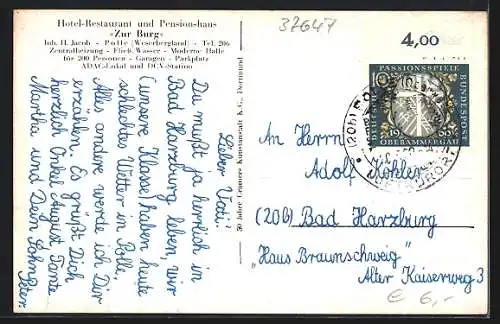 Hotel-Restaurant und Pensionshaus
«Zur Burg»
Inh. H. Jacob - Polle (Weserbergland) - Tel. 206
Zentralheizung - Fließ. Wasser - Moderne Halle
für 200 Personen - Garagen - Parkplatz
ADAC-Lokal und DCV-Station
37647
4,00
Lieber Vati!
Du mußt ja herrlich in
Bad Harzburg leben, wir
(unsere Klasse) haben heute
schlechtes Wetter in Polle.
Alles andere werde ich Dir
erzählen. Es grüßt Dich
herzlich Onkel August, Tante
Martha und Dein Sohn
Peter.
50 Jahre Cramers Kunstanstalt K.G., Dortmund
PASSIONSSPIELE
10
DEUTSCHE
BUNDESPOST
1960
OBERAMMERGAU
(20b)
LUFTKURORT
An Herrn
Adolf Köhler
(20b) Bad Harzburg
"Haus Braunschweig"
Alter Kaiserweg 3
€ 6,-